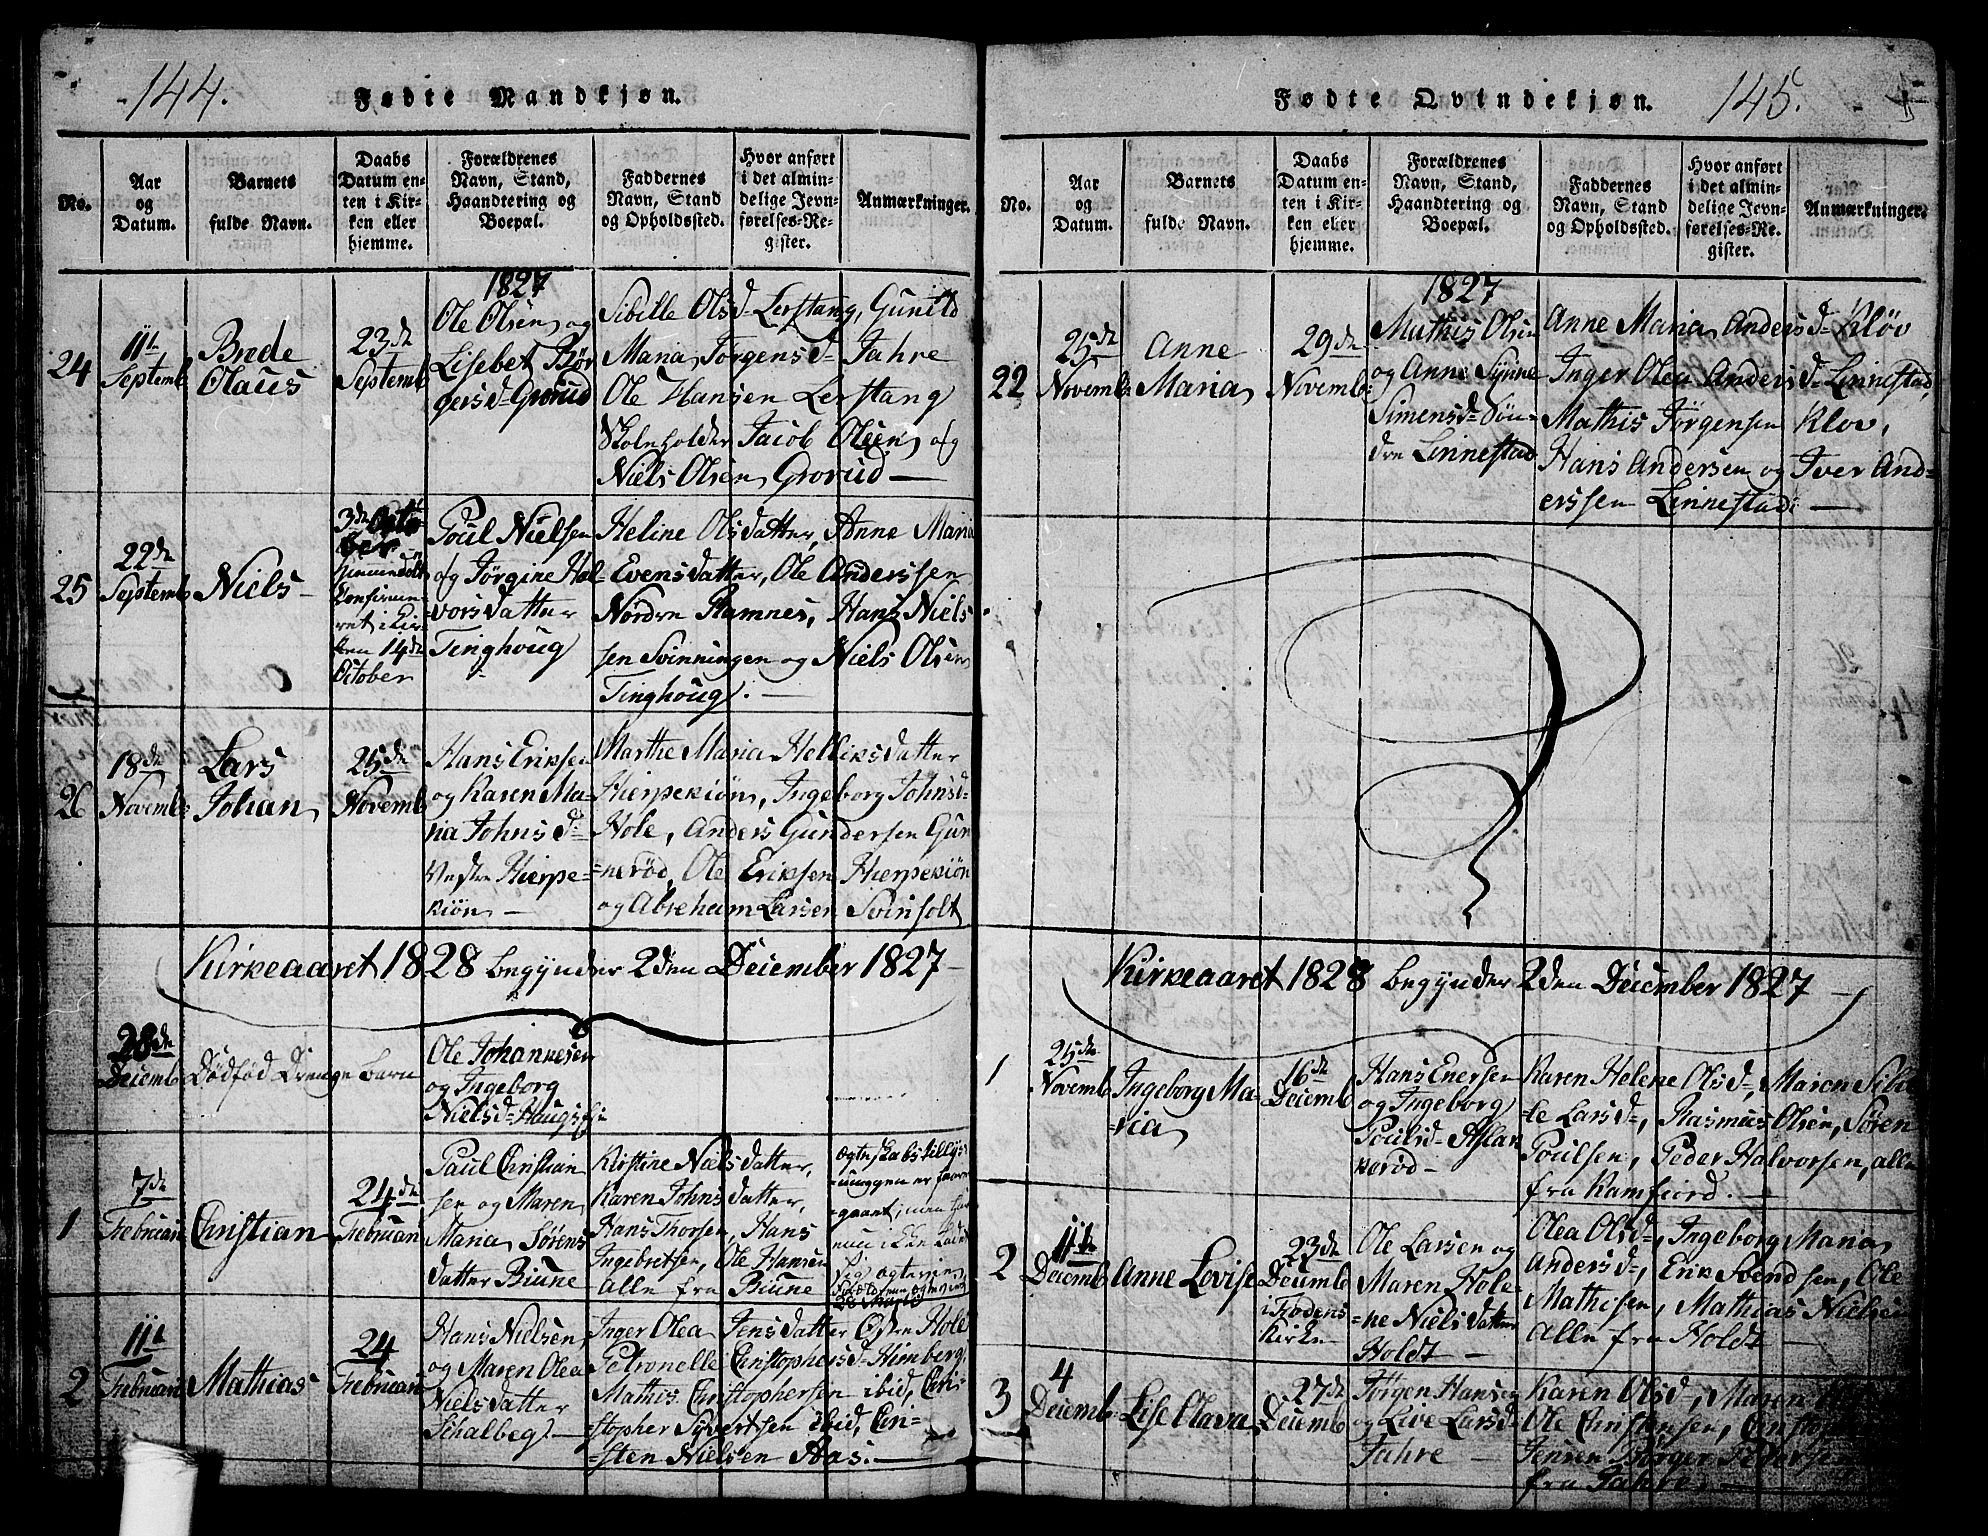 144.
Fødte Mandkjøn.
No.
Aar
og
Datum.
Barnets
fulde Navn.
Daabs
Datum en-
ten i Kir-
ken eller
hjemme.
Forældrenes
Navn, Stand,
Haandtering og
Boepæl.
Faddernes
Navn, Stand
og Opholdssted.
Hvor anført
i det almin-
delige Jevn-
førelses-Re-
gister.
Anmærkninger.
24
11te
Septemb
Brede
Olaus
23de
Septemb
1827
Ole Olsen og
Lisebet Bør
gersd= Grorud
Sibille Olsd= Lerstang, Gunild
Maria Jørgensd= Jahre
Ole Hansen Lerstang
Skoleholder Jacob Olsen og
Niels Olsen Grorud —
25
22de
Septemb
Niels —
3de Octo
ber
hjemmedøbt
Confirme-
ret i Kir-
ken 14de
October
Poul Nielsen
og Jørgine Hal-
vorsdatter
Tinghoug
Heline Olsdatter, Anne Maria
Evensdatter, Ole Anderssen
Nordre Ramnes, Hans Niels
sen Svinningen og Niels Olsen
Tinghoug. —
26
18de
Novemb:
Lars
Johan
25de
Novemb
Hans Eriksen
og Karen Ma-
ria Johnsd=
Vestre Hierpe-
kiøn —
Marthe Maria Helliksdatter
Hierpekiøn, Ingeborg Johnsd=
Hole, Anders Gundersen Gun
=nerød, Ole Eriksen Hierpekiøn
og Abraham Larsen Svinholt
Kirkeaaret 1828 begynder 2den December 1827 —
28de
Decemb
Dødfød Drenge barn
Ole Johannesen
og Ingeborg
Nielsd=
1
7de
Februari
Christian
24de
Februari
Paul Christian
sen og Maren
Maria Sørens
datter Biune
Kirstine Nielsdatter,
Karen Johnsdatter,
Hans Thorsen, Hans
Ingebretsen, Ole Hansen
Alle fra Biune
Ogteskabstillys-
ningen er foere
gaaet, men har
nu ikke ladet
sig ogtevie
2
11te
Februari
Mathias
24
Februari
Hans Nielsen
og Maren Olea
Nielsdatter
Schalberg —
Inger Olea Jensdatter Østre Hole
Petronelle Christophersd= Himberg,
Mathis Christophersen ibid, Chri-
stopher Syvertsen ibid, Chri-
=sten Nielsen Aas. —
Fødte Qvindekjøn.
145.
No.
Aar
og
Datum.
Barnets
fulde Navn.
Daabs
Datum en-
ten i Kir-
ken eller
hjemme.
Forældrenes
Navn, Stand,
Haandtering og
Boepæl.
Faddernes
Navn, Stand
og Opholdssted.
Hvor anført
i det almin-
delige Jevn-
førelses-Re-
gister.
Anmærkninger.
22
25de
Novemb:
Anne
Maria
29de
Novemb:
1827
Mathis Olsen
og Anne Synne
Simensd= Søn-
dre Linnestad
Anne Maria Andersd= Kløv
Inger Olea Andersd= Linnestad,
Mathis Jørgensen Klov,
Hans Andersen og Iver And-
erssen Linnestad —
Kirkeaaret 1828 begynder 2den December 1827 —
1
25de
Novemb
Ingeborg Ma-
=ria
16de
Decemb
Hans Enersen
og Ingeborg
Poulsd= Aslak
kerød —
Karen Helene Olsd=, Maren Sibil
=le Larsd=, Rasmus Olsen, Søren
Poulsen, Peder Halvorsen, alle
fra Ramfiord. —
2
11te
Decemb
Anne Lovise
23de
Decemb
i Fodens
Kirke
Ole Larsen og
Maren Hele-
=ne Nielsdatter
Holdt —
Olea Olsd=, Ingeborg Maria
Andersd=, Erik Svendsen, Ole
Mathisen, Mathias Nielsen
Alle fra Holdt —
3
4
Decemb
Lise Olava
27de
Decemb
Jørgen Hansen
og Live Larsd=
Jahre —
Karen Olsd=, Maren
Ole Christensen,
Jensen Børger Pedersen
fra Jahre. —